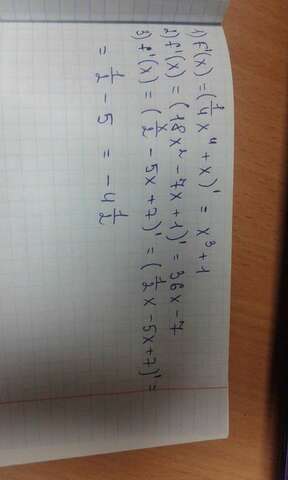 1) f'(x) = (1/4 x⁴ + x)' = x³ + 1
2) f'(x) = (18x² - 7x + 1)' = 36x - 7
3) f'(x) = (x/2 - 5x + 7)' = (1/2 x - 5x + 7)' =
= 1/2 - 5 = -4 1/2